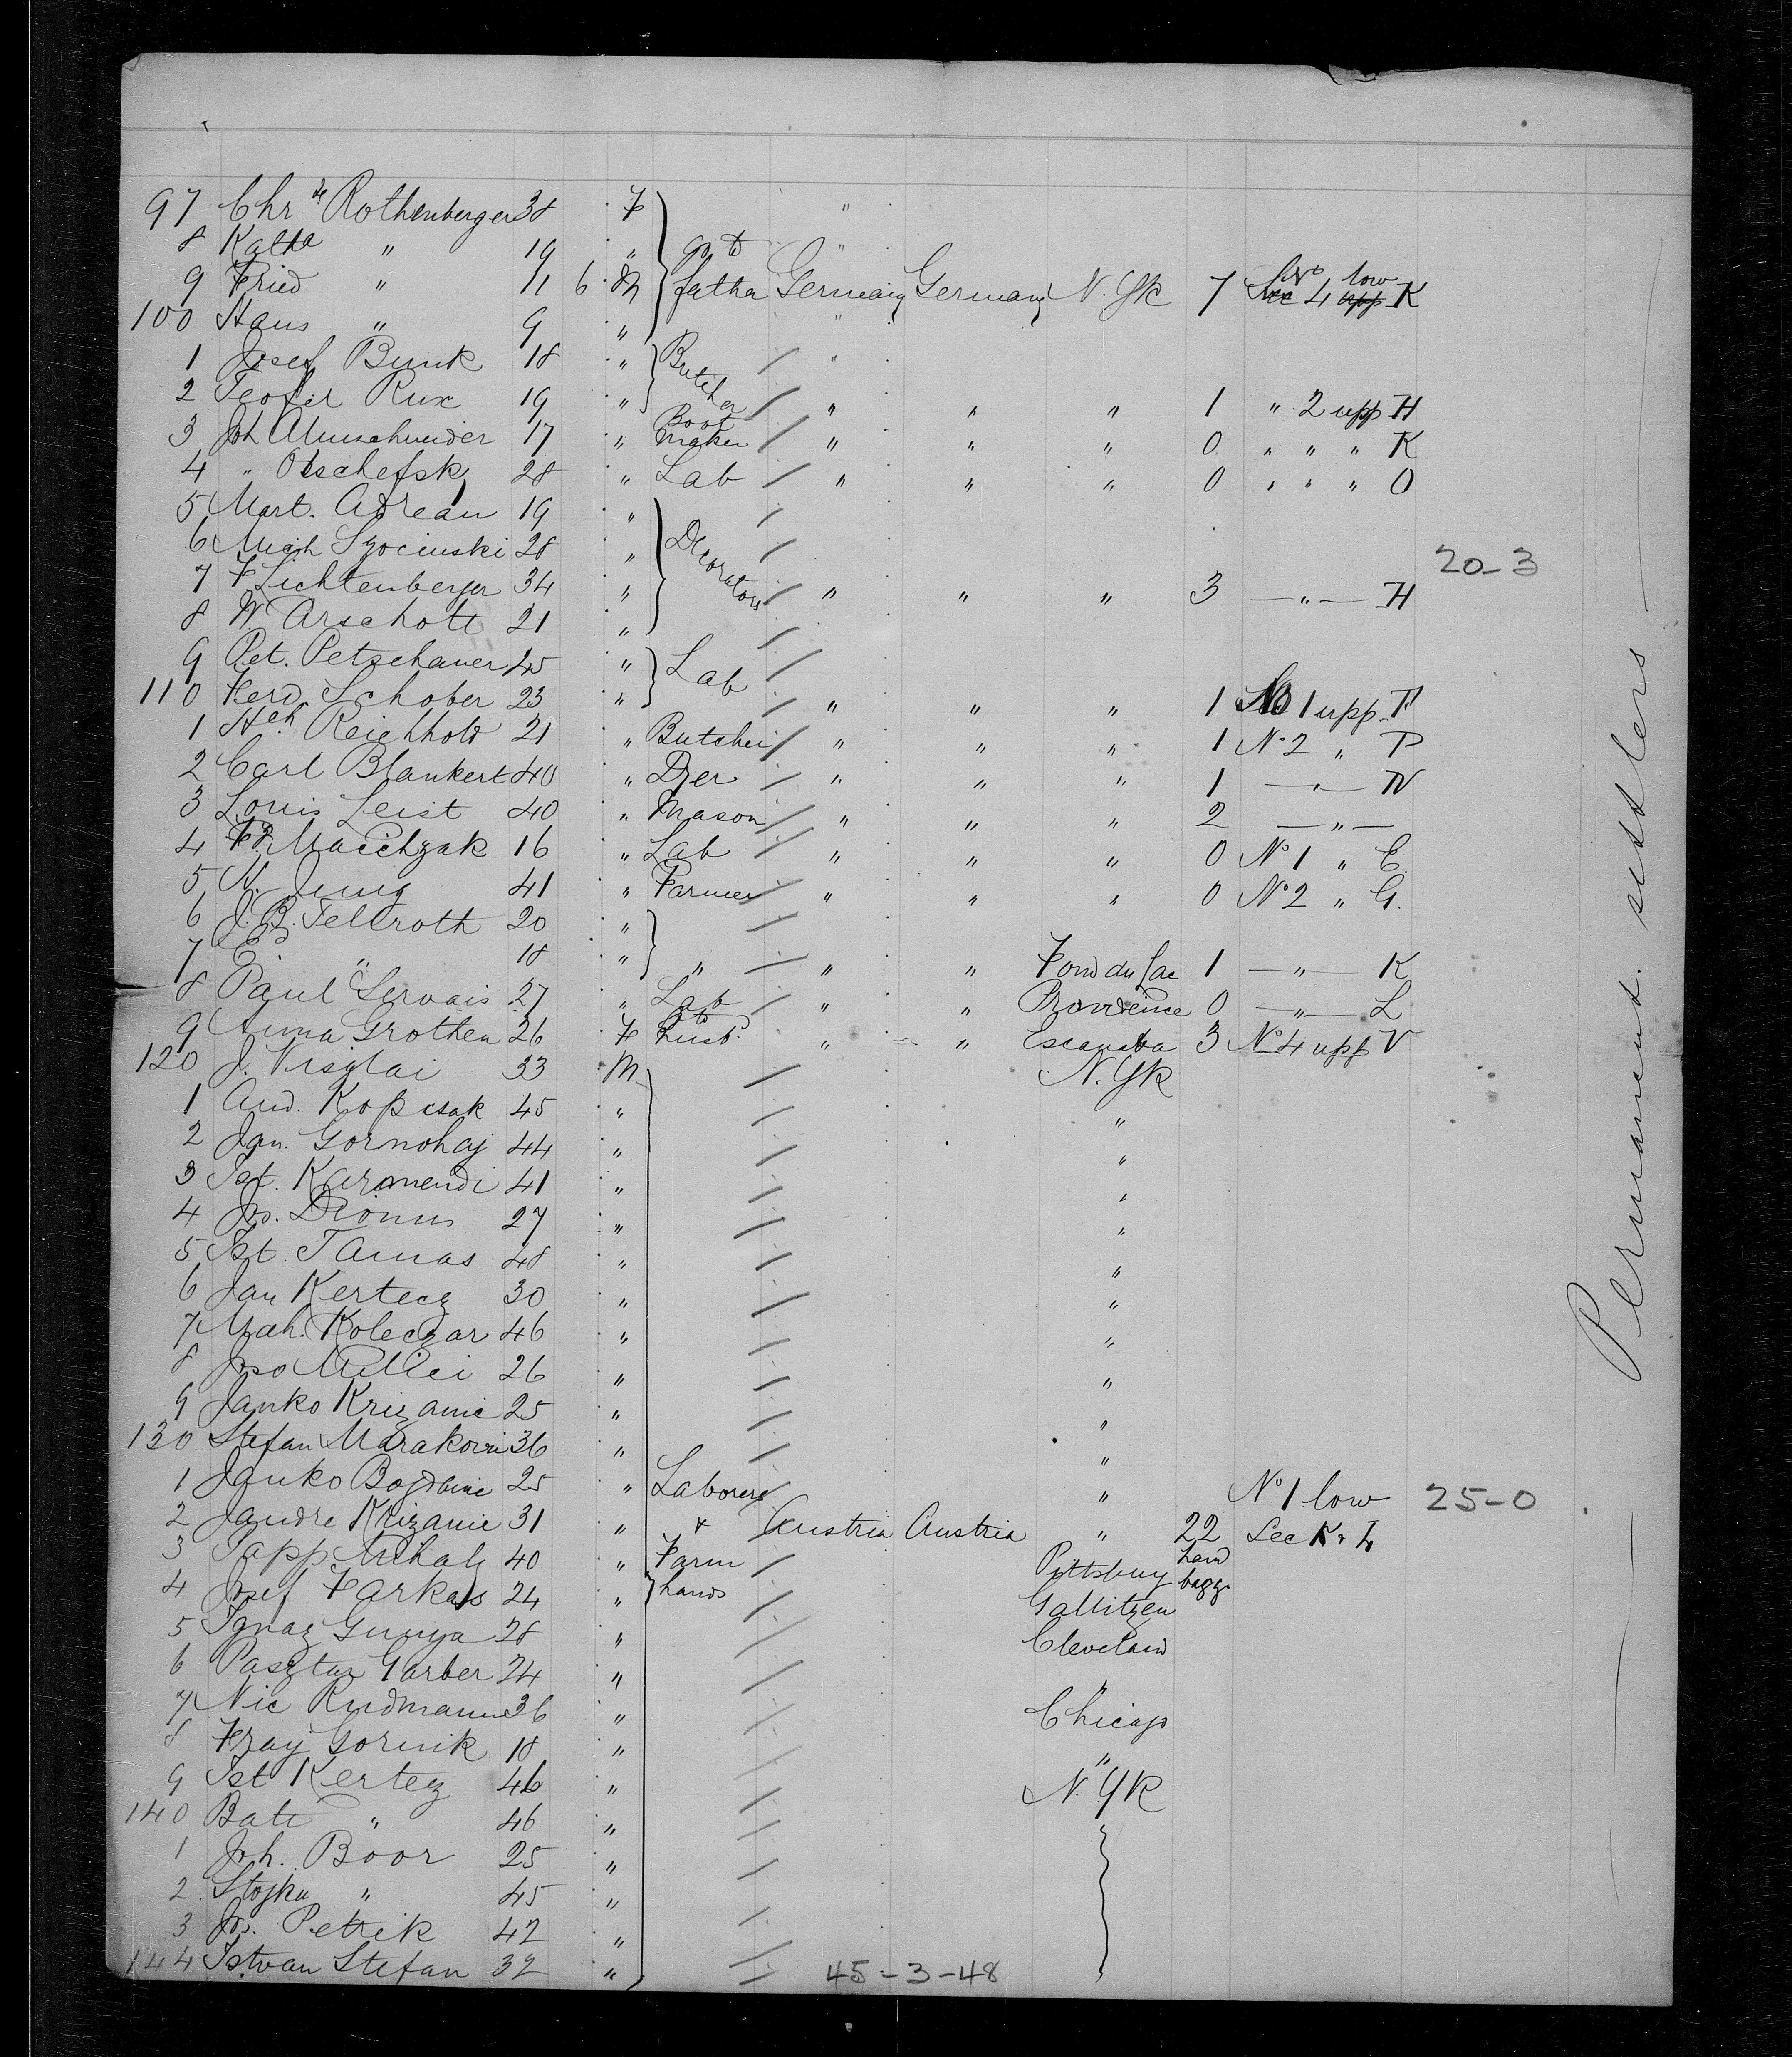 97 Chr te Rothenberger 38 F "
8 Katha " 19 " go to "
9 Fried " 11 6 M father Germany Germany N. Yk 7 No 4 low K
100 Hans " 9 " "
1 Josef Bunk 18 " Butcher / "
2 Teofil Rux 19 " / " " " 1 " 2 upp H
3 Joh Aumschneider 17 " Boot maker / " " " 0 " " " K
4 " Olschefsky 28 " Lab / " " " 0 " " " O
5 Mart. Adrean 19 " /
6 Mich Szocinski 28 " Decorators / 20-3
7 F Lichtenberger 34 " / " " " 3 — " — H
8 W. Arschott 21 " /
9 Pet. Petschauer 45 " Lab /
110 Ferd. Schober 23 " / " " " 1 No 1 upp F
1 Hch Reichhold 21 " Butcher / " " " 1 No 2 " P
2 Carl Blankert 40 " Dyer / " " " 1 — " — N
3 Louis Leist 40 " Mason / " " " 2 — " —
4 Fr Maichzak 16 " Lab / " " " 0 No 1 " C.
5 N. Jung 41 " Farmer / " " " 0 No 2 " G.
6 J. B. Tellroth 20 " /
7 E. " 18 " " / " " Fond du Lac 1 — " — K
8 Paul Gervais 27 " Lab / " " Providence 0 — " — L
9 Anna Grothen 26 F to husb. " " Escanaba 3 No 4 upp V
120 J. Viszlai 33 M / N. Yk
1 And. Kopcsak 45 " / "
2 Jan. Gornohaj 44 " / "
3 Ist. Karmendi 41 " / "
4 Jos. Dionus 27 " / "
5 Ist. Tamas 48 " / "
6 Jan Kertecz 30 " / "
7 Mah. Koleczar 46 " / "
8 Joso Millei 26 " / "
9 Janko Krizanic 25 " / "
130 Stefan Marakovic 36 " / "
1 Janko Bogdanic 25 " Laborers / " No 1 low 25-0
2 Jandre Krizanic 31 " & / Austria Austria " 22 Sec K & L
3 Papp Mihaly 40 " Farm / Pittsburg hand
4 Josef Farkass 24 " hands / Gallitzen bagg.
5 Ignaz Gunya 28 " / Cleveland
6 Pasztaz Garber 24 " / "
7 Nic Rudmann 36 " / Chicago
8 Fray Gornik 18 " / "
9 Ist Kertez 46 " / N. Yk
140 Bate " 46 " /
1 Joh. Boor 25 " /
2 Stojka " 45 " /
3 Jos. Petrik 42 " /
144 Istvan Stefan 32 " / 45-3-48
Permanent settlers